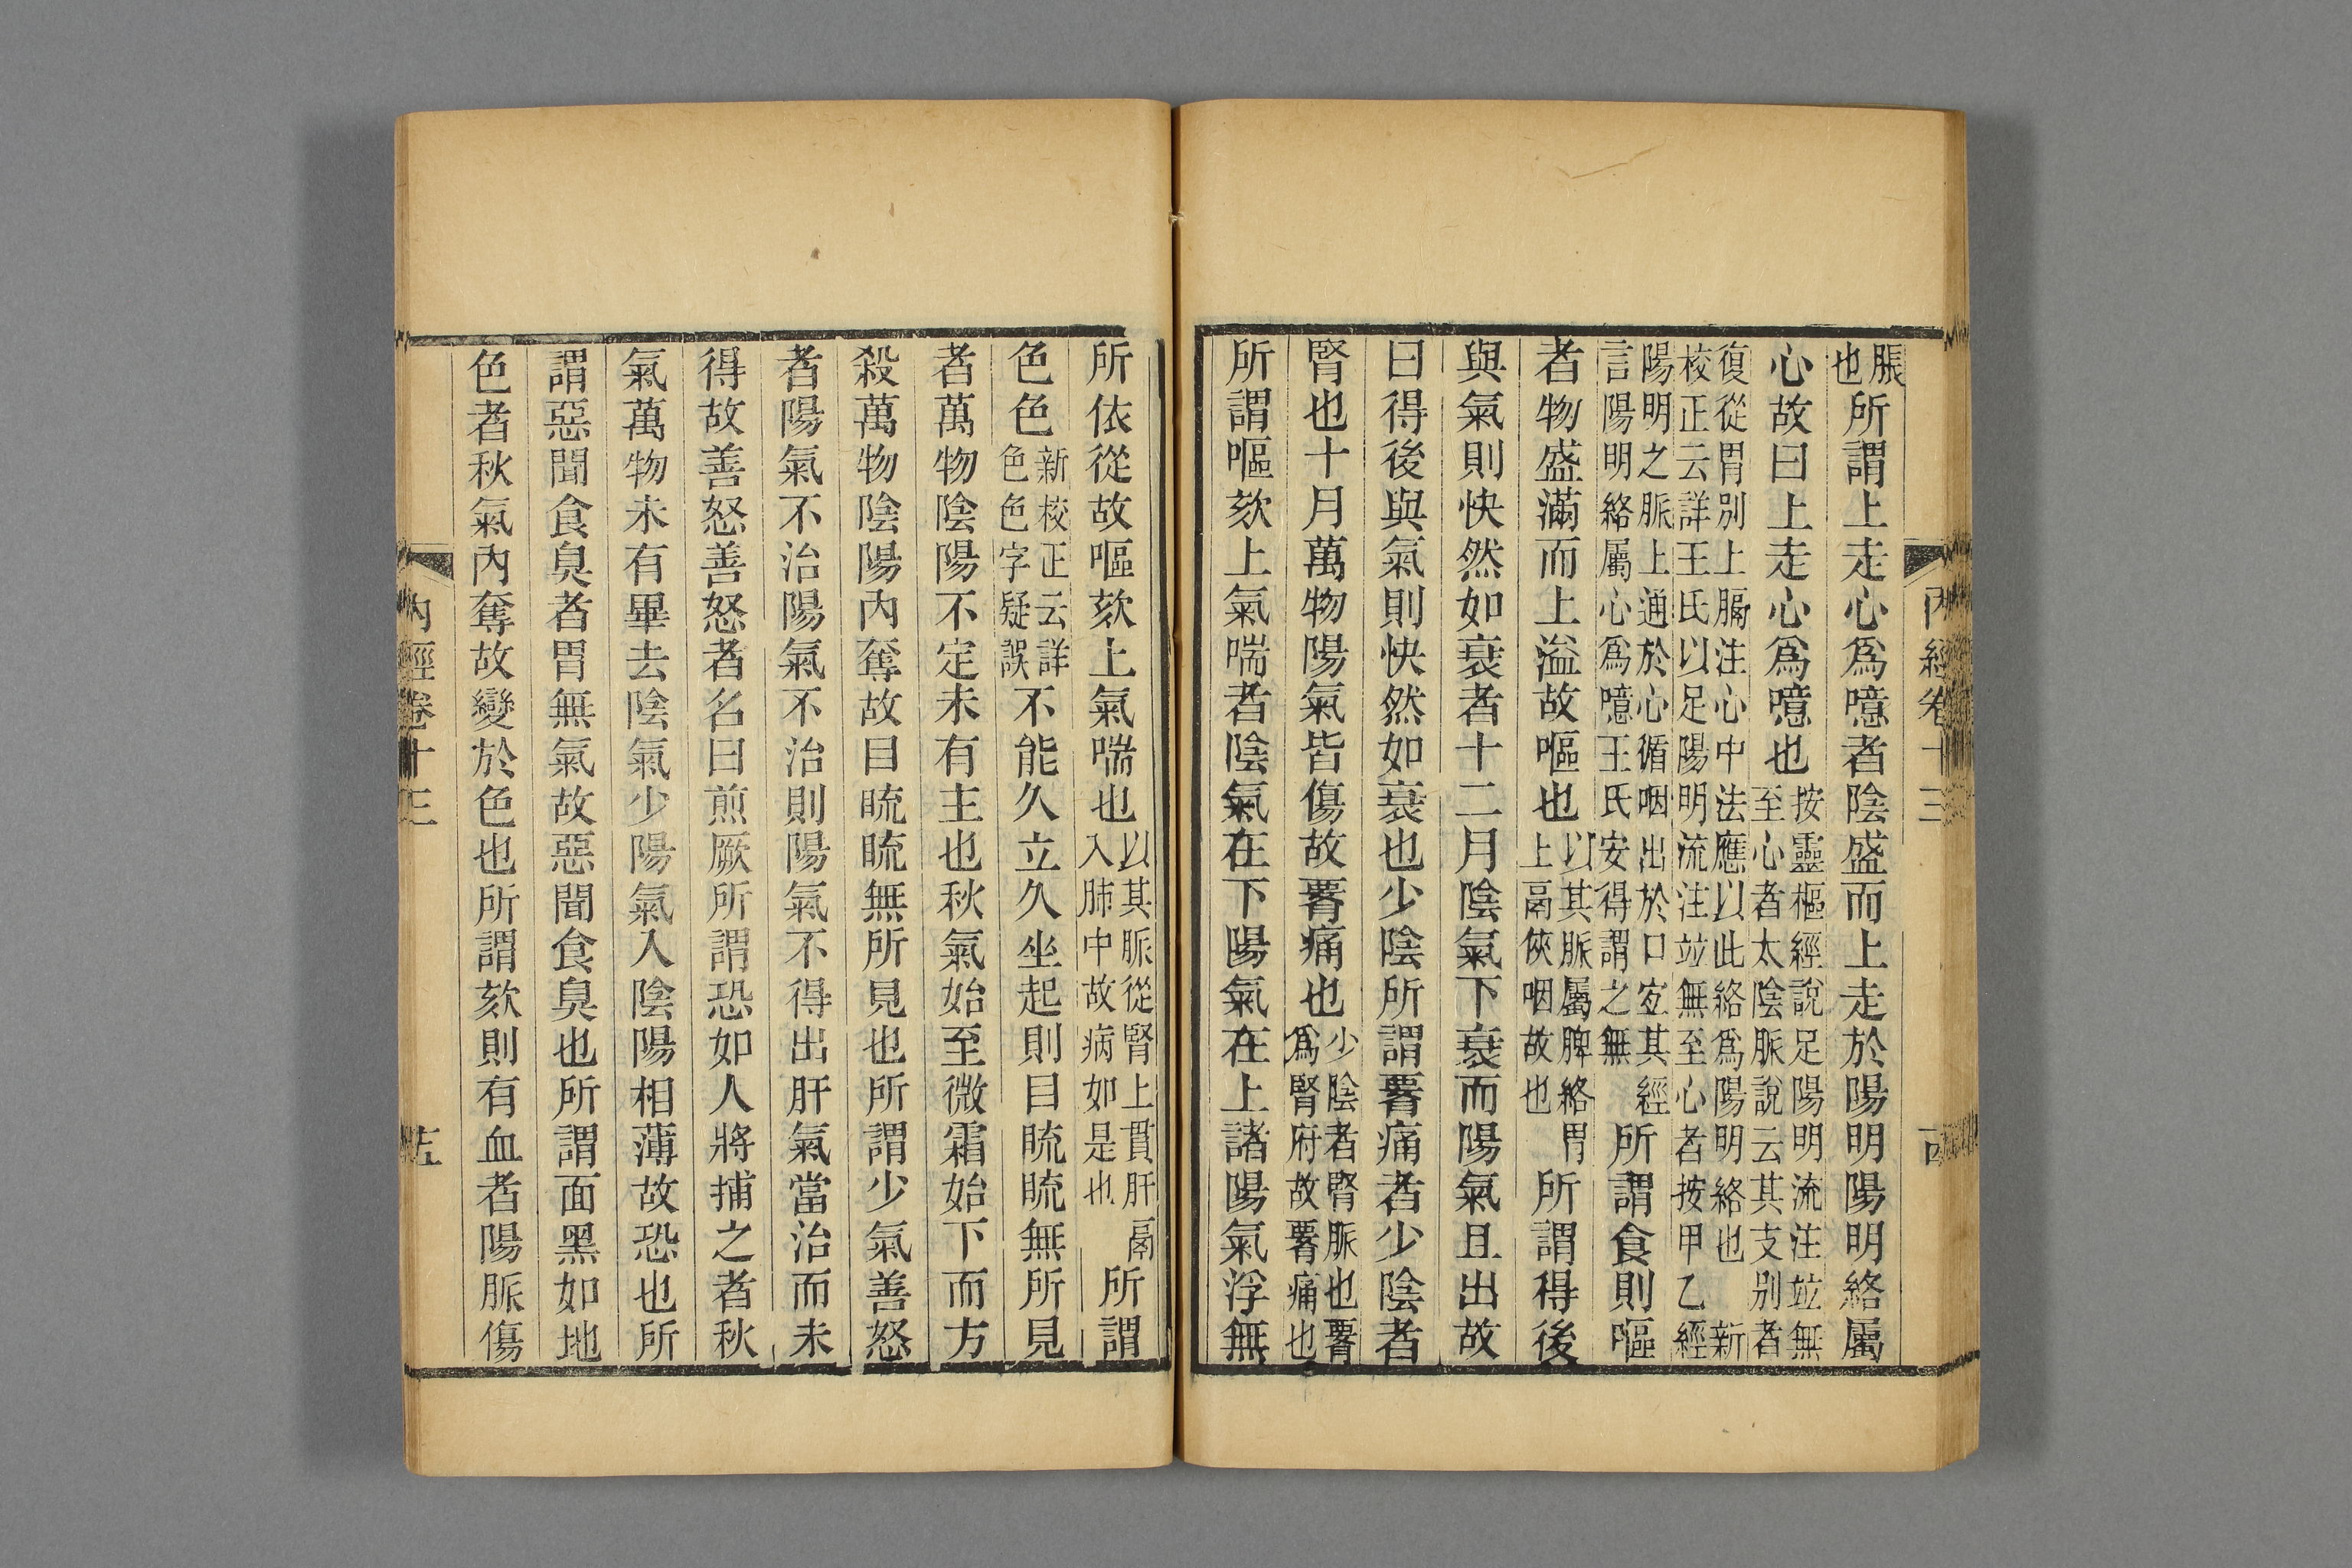 內經卷十三
脹也所謂上走心爲噫者陰盛而上走於陽明陽明絡屬
心故曰上走心爲噫也按靈樞經說足陽明流注竝無至心者太陰脈說云其支别者
復從胃别上膈注心中法應以此絡爲陽明絡也新校正云詳王氏以足陽明流注竝無至心者按甲乙經
陽明之脈上通於心循咽出於口宐其經言陽明絡屬心爲噫王氏安得謂之無所謂食則嘔
者物盛滿而上溢故嘔也以其脈屬脾絡胃上鬲俠咽故也所謂得後
與氣則快然如衰者十二月陰氣下衰而陽氣且出故
曰得後與氣則快然如衰也少陰所謂腰痛者少陰者
腎也十月萬物陽氣皆傷故腰痛也少陰者腎脈也腰爲腎府故腰痛也
所謂嘔欬上氣喘者陰氣在下陽氣在上諸陽氣浮無
所依從故嘔欬上氣喘也以其脈從腎上貫肝鬲入肺中故病如是也所謂
色色新校正云詳色色字疑誤不能久立久坐起則目䀮䀮無所見
者萬物陰陽不定未有主也秋氣始至微霜始下而方
殺萬物陰陽内奪故目䀮䀮無所見也所謂少氣善怒
者陽氣不治陽氣不治則陽氣不得出肝氣當治而未
得故善怒善怒者名曰煎厥所謂恐如人將捕之者秋
氣萬物未有畢去陰氣少陽氣入陰陽相薄故恐也所
謂惡聞食臭者胃無氣故惡聞食臭也所謂面黑如地
色者秋氣内奪故變於色也所謂欬則有血者陽脈傷
內經卷十三